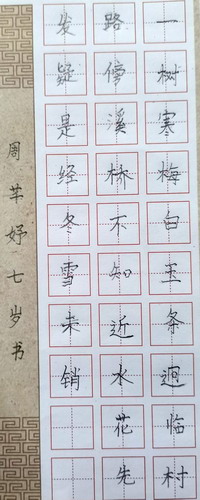 一树寒梅白玉条迥临村
路傍溪桥不知近水花先
发疑是经冬雪未销
周芊妤七岁书